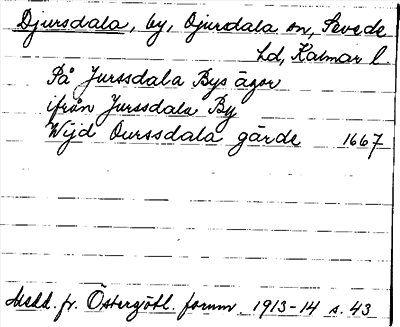 Djursdala, by, Djursdala sn, Sevede
hd, Kalmar l.
På Jurssdala Bys ägor
ifrån Jurssdala By
Wijd Ourssdala gärde 1667
Medd. fr. Östergötl. fornm. 1913-14 s. 43